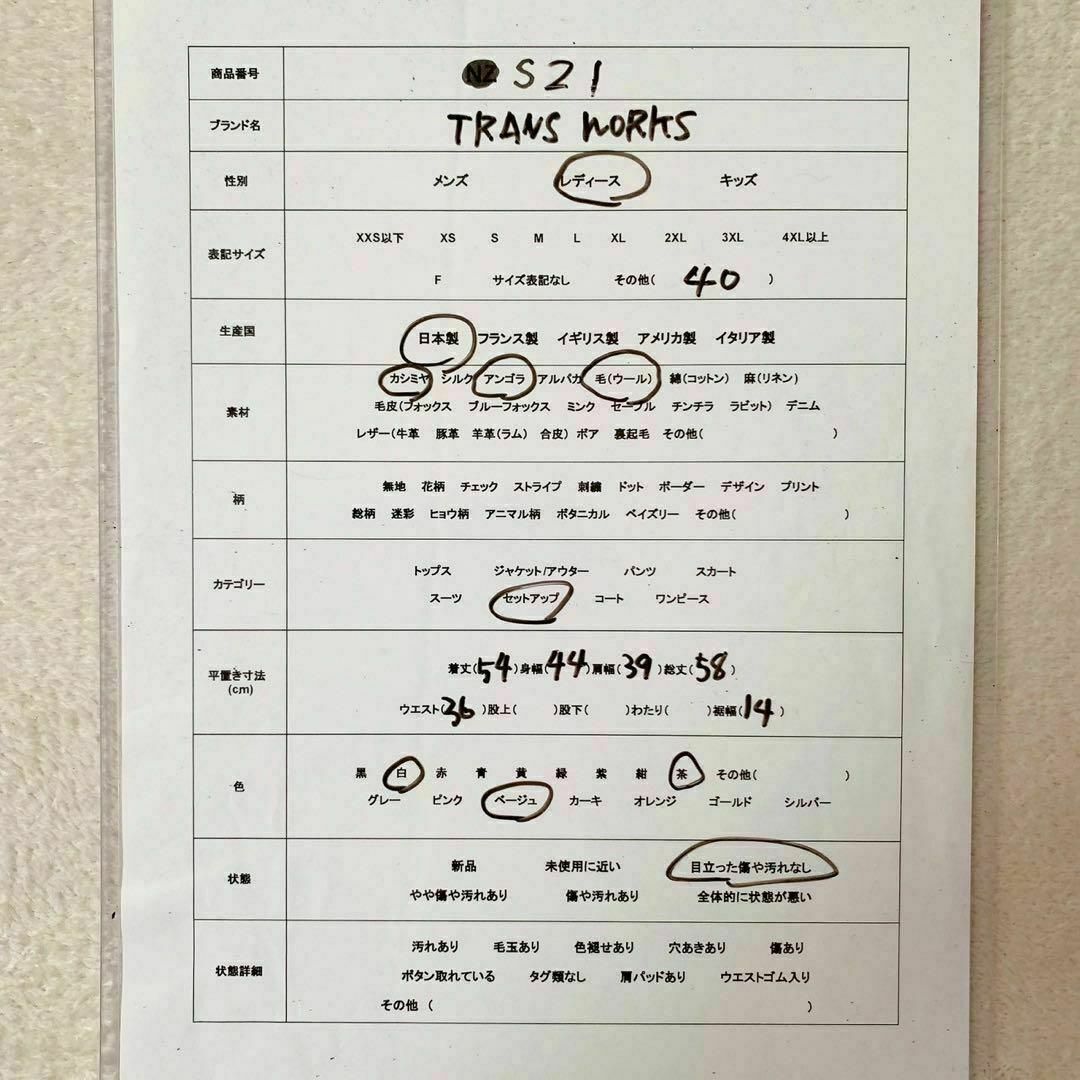 商品番号 NZ S21
ブランド名 TRANS WORKS
性別 メンズ レディース キッズ
XXS以下 XS S M L XL 2XL 3XL 4XL以上
表記サイズ
F サイズ表記なし その他( 40 )
生産国 日本製 フランス製 イギリス製 アメリカ製 イタリア製
カシミヤ シルク アンゴラ アルパカ 毛(ウール) 綿(コットン) 麻(リネン)
素材 毛皮(フォックス ブルーフォックス ミンク セーブル チンチラ ラビット) デニム
レザー(牛革 豚革 羊革(ラム) 合皮) ボア 裏起毛 その他( )
無地 花柄 チェック ストライプ 刺繍 ドット ボーダー デザイン プリント
柄
総柄 迷彩 ヒョウ柄 アニマル柄 ボタニカル ペイズリー その他( )
トップス ジャケット/アウター パンツ スカート
カテゴリー
スーツ セットアップ コート ワンピース
着丈(54)身幅(44)肩幅(39)総丈(58)
平置き寸法
(cm)
ウエスト(36)股上( )股下( )わたり( )裾幅(14)
黒 白 赤 青 黄 緑 紫 紺 茶 その他( )
色
グレー ピンク ベージュ カーキ オレンジ ゴールド シルバー
新品 未使用に近い 目立った傷や汚れなし
状態
やや傷や汚れあり 傷や汚れあり 全体的に状態が悪い
汚れあり 毛玉あり 色褪せあり 穴あきあり 傷あり
状態詳細 ボタン取れている タグ類なし 肩パッドあり ウエストゴム入り
その他 ( )